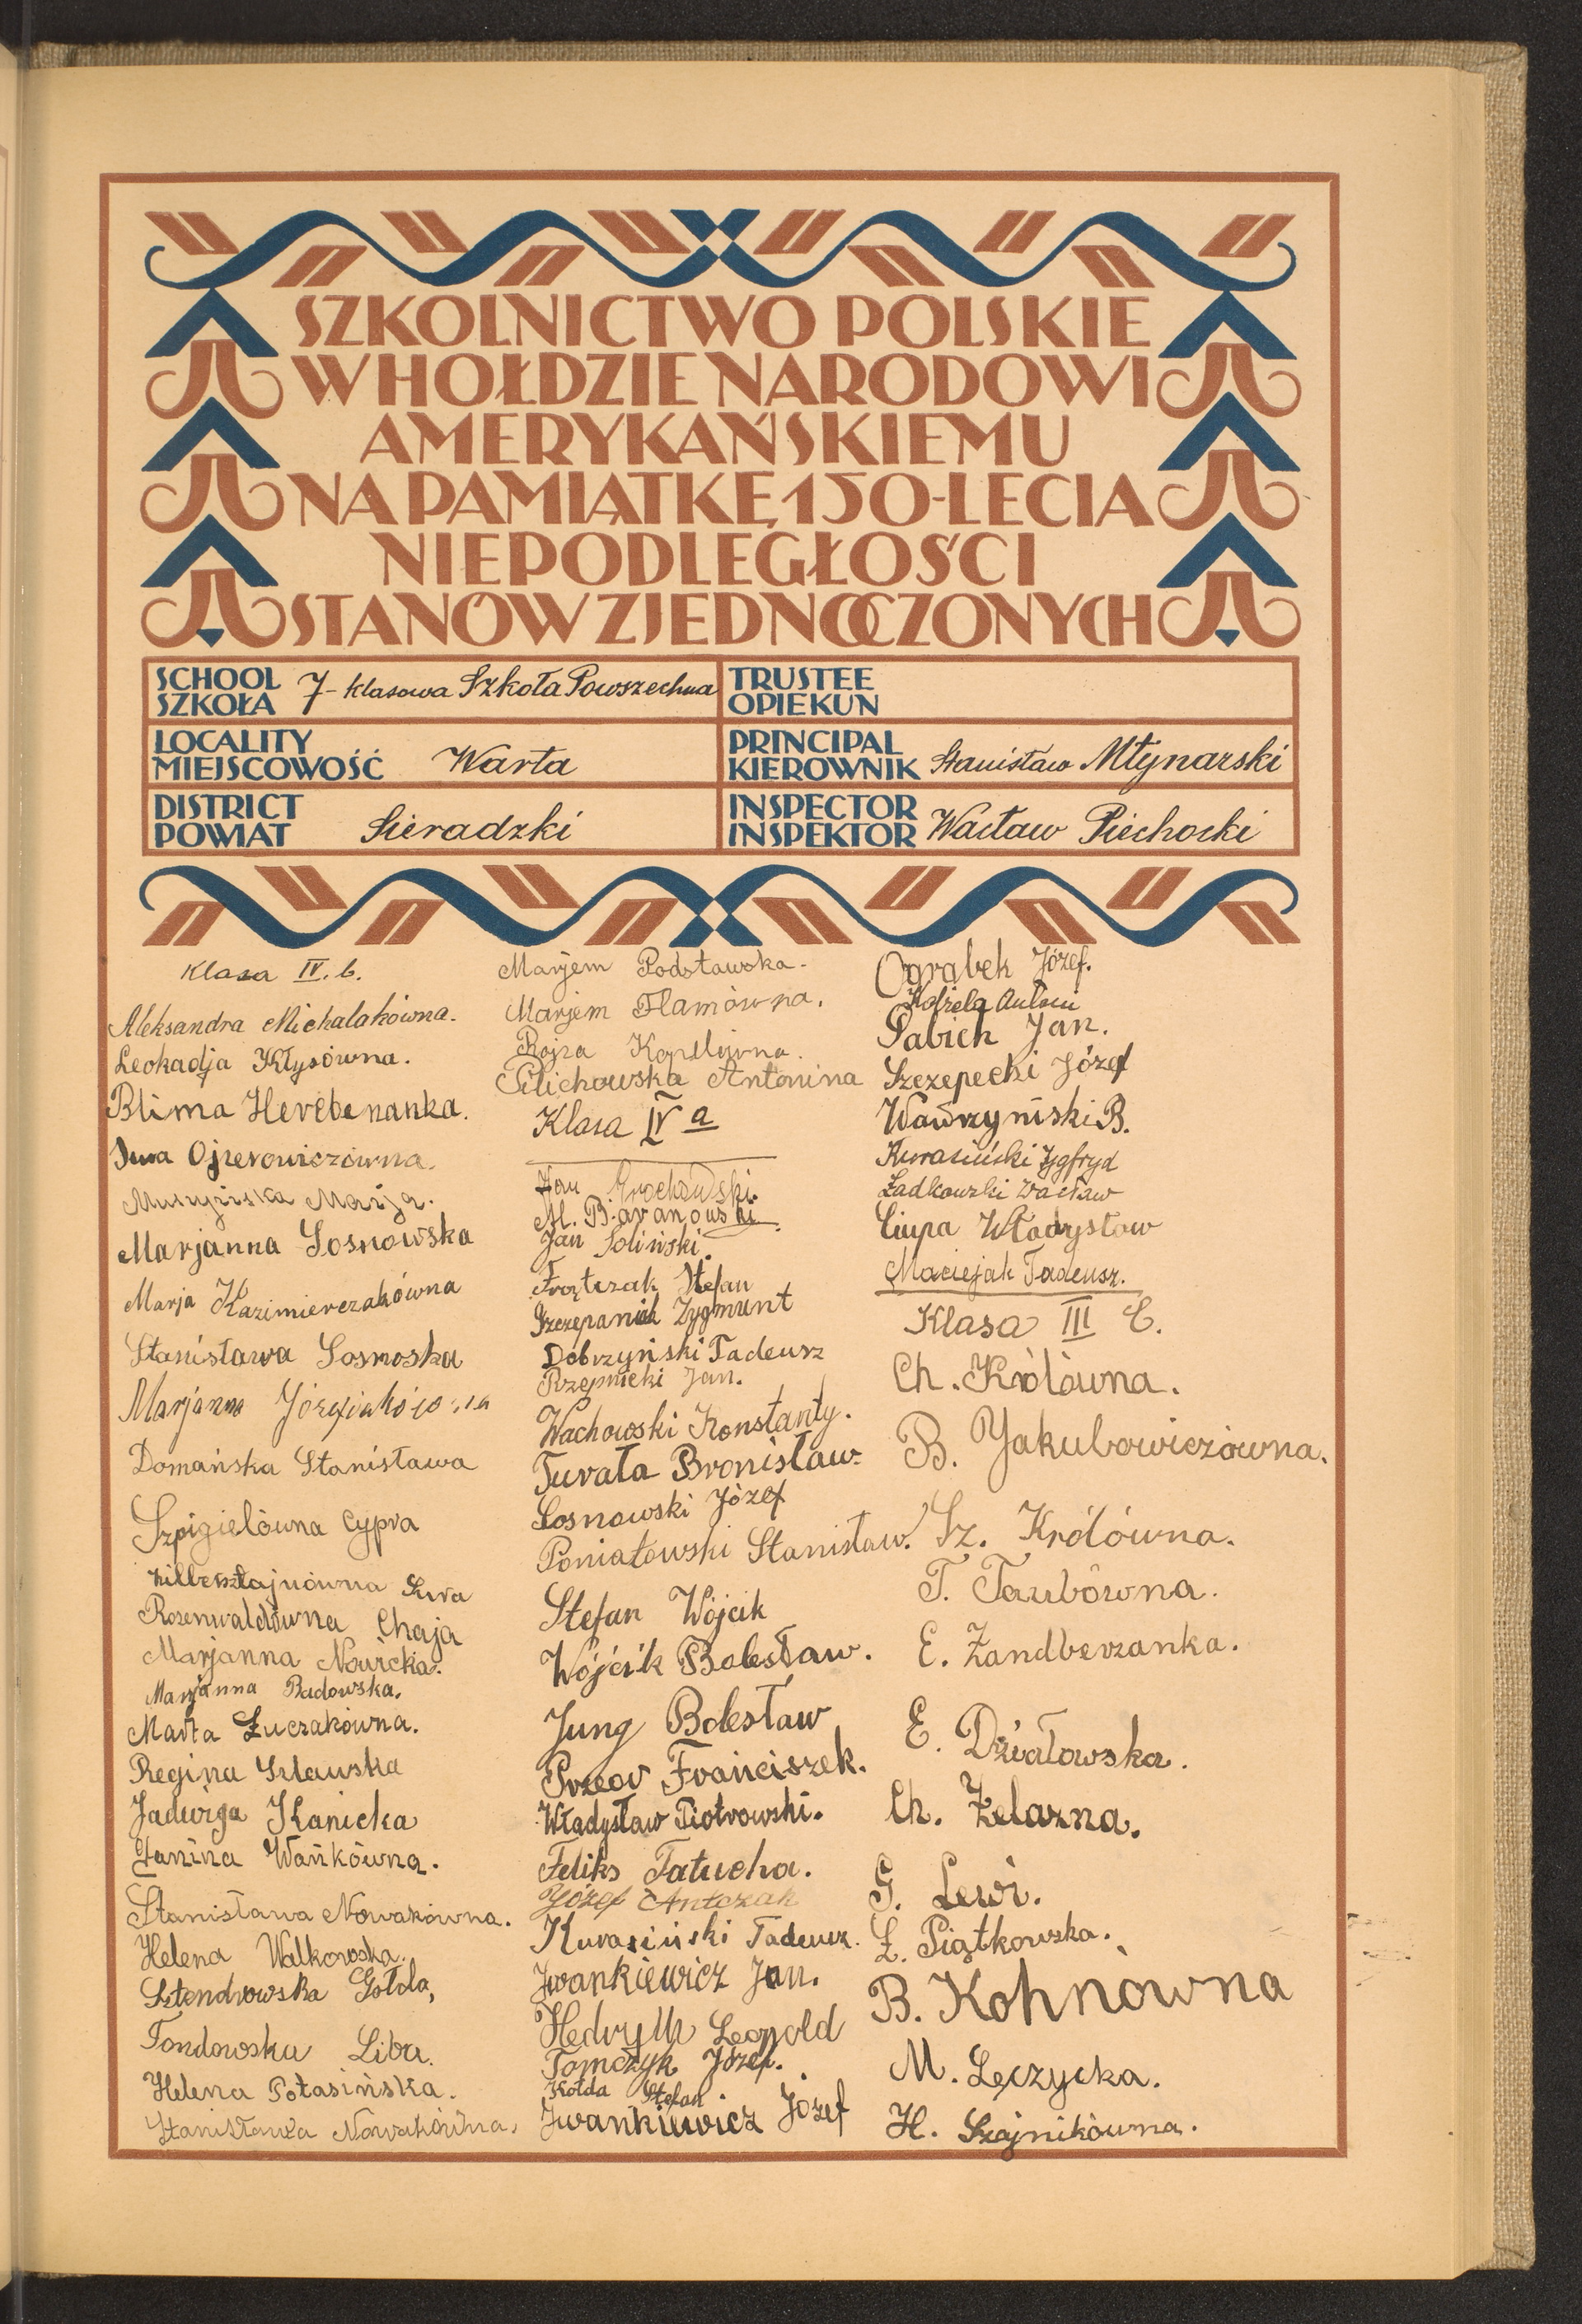 SZKOLNICTWO POLSKIE
W HOŁDZIE NARODOWI
AMERYKAŃSKIEMU
NA PAMIĄTKĘ 150-LECIA
NIEPODLEGŁOŚCI
STANÓW ZJEDNOCZONYCH
SCHOOL
SZKOŁA
7-klasowa Szkoła Powszechna
TRUSTEE
OPIEKUN
LOCALITY
MIEJSCOWOŚĆ
Warta
PRINCIPAL
KIEROWNIK
Stanisław Młynarski
DISTRICT
POWIAT
Sieradzki
INSPECTOR
INSPEKTOR
Wacław Piechocki
Klasa IV. b.
Aleksandra Michalakówna.
Leokadja Kłysówna.
Blima
Ojzerowiczówna.
Marja.
Marjanna Sosnowska
Marja Kazimierczakówna
Stanisława Sosnoska
Marjanna
Domańska Stanisława
Szpigielówna Cypra
Rozenwaldówna Chaja
Marjanna Nowicka.
Marjanna Badowska.
Marta Łuczakówna.
Regina
Jadwiga Kanicka
Janina Wańkówna.
Stanisława Nowakówna.
Helena Walkowska.
Sztendrowska Gołda,
Tondowska Liba.
Helena Potasińska.
Stanisława Nowakówna,
Marjem Podstawska.
Marjem Flamówna.
Rojza
Pilichowska Antonina
Klasa IV a
Jan Grochowski.
M. Baranowski.
Jan Soliński.
Frątczak Stefan
Szczepaniak Zygmunt
Dobrzyński Tadeusz
Rzepnicki Jan.
Wachowski Konstanty.
Turała Bronisław.
Sosnowski Józef
Poniatowski Stanisław.
Stefan Wójcik
Wójcik Bolesław.
Jung Bolesław
Franciszek.
Władysław Piotrowski.
Feliks Tatucha.
Józef Antczak
Kurasiński Tadeusz.
Iwankiewicz Jan.
Leopold
Tomczyk Józef.
Kołda Stefan
Iwankiewicz Józef
Ograbek Józef.
Antoni
Pabich Jan.
Szczepecki Józef
Wawrzyniski B.
Kurasiński Zygfryd
Ładkowski Wacław
Ciupa Władysław
Maciejak Tadeusz.
Klasa III C.
Ch. Królówna.
B. Jakubowiczówna.
Sz. Królówna.
T. Taubówna.
E. Zandberzanka.
E. Działowska.
Ch. Żelazna.
G. Lewi.
Ł. Piątkowska.
B. Kohnówna
M. Łęczycka.
H. Szajnikówna.